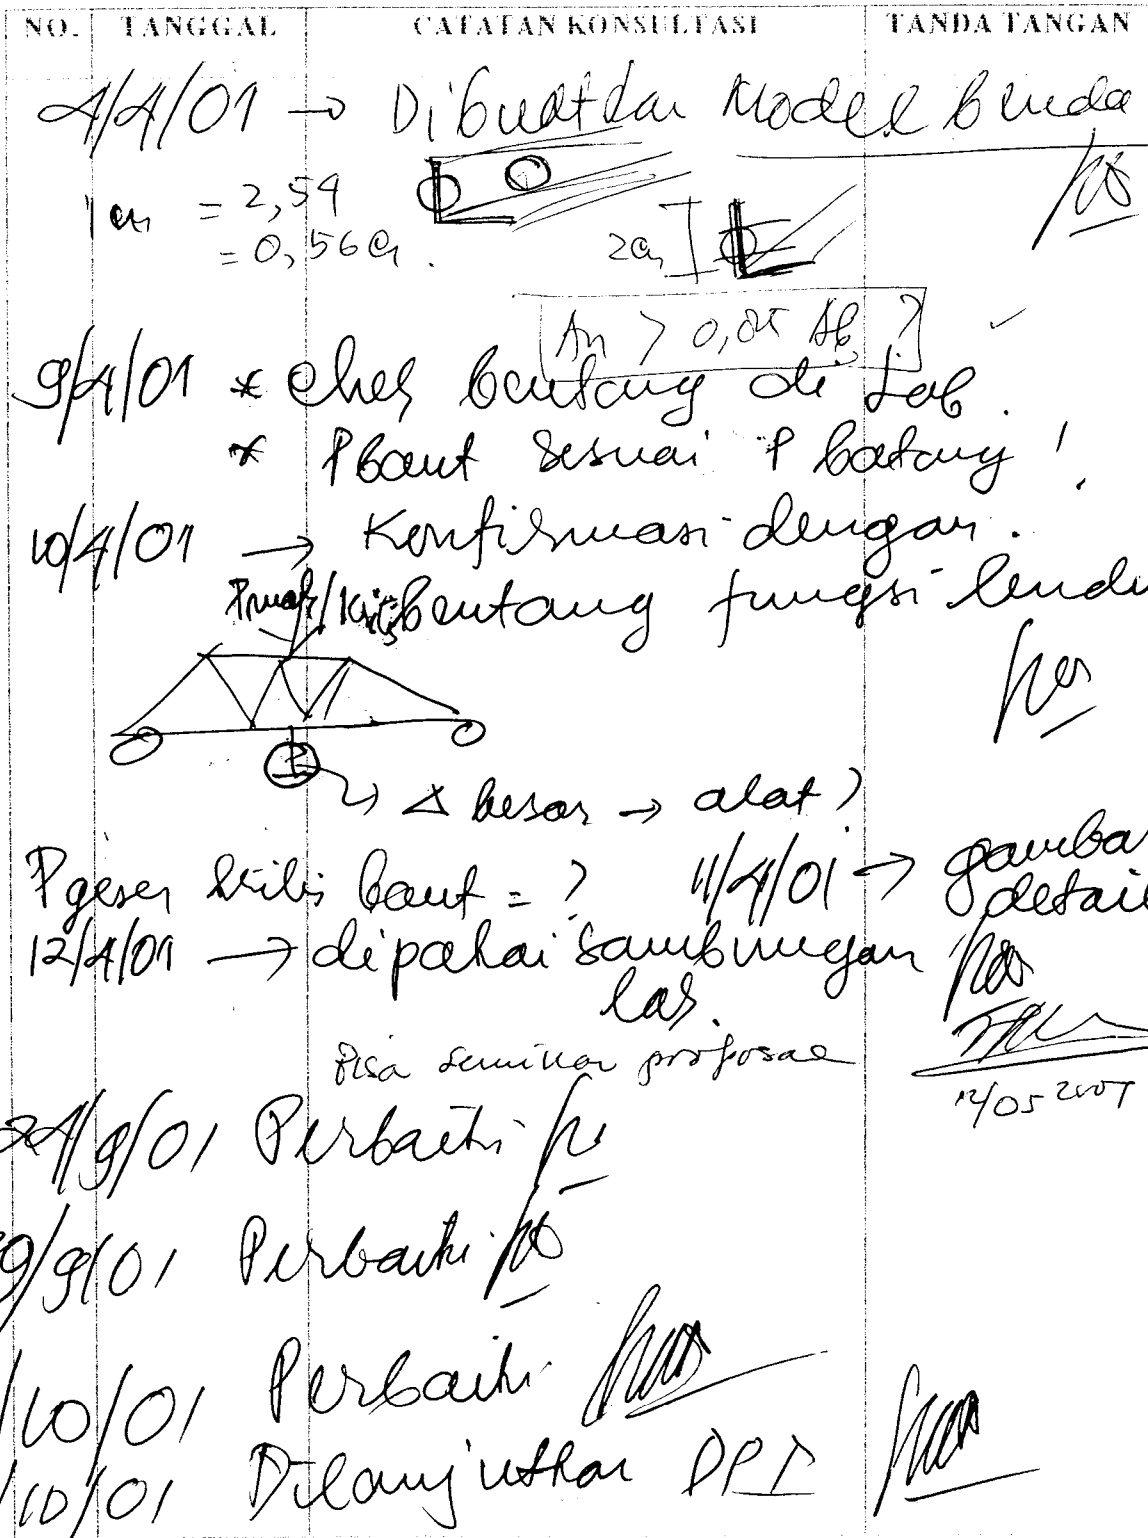 NO. TANGGAL CATATAN KONSULTASI TANDA TANGAN
4/4/01 → Dibuatkan Model benda
= 2,54
= 0,56
2 cm
An > 0,85 Ab ?
9/4/01 * chek bentang di Lab.
* P baut sesuai P batang !
10/4/01 → Konfirmasi dengan.
bentang fungsi lendu
→ Δ besar → alat ?
P geser kritis baut = ? 11/4/01 → gambar
detail
12/4/01 → dipakai sambungan
las.
Bisa seminar proposal
12/05 2001
/9/01 Perbaiki
9/9/01 Perbaiki
/10/01 Perbaiki
/10/01 Dilanjutkan DP I